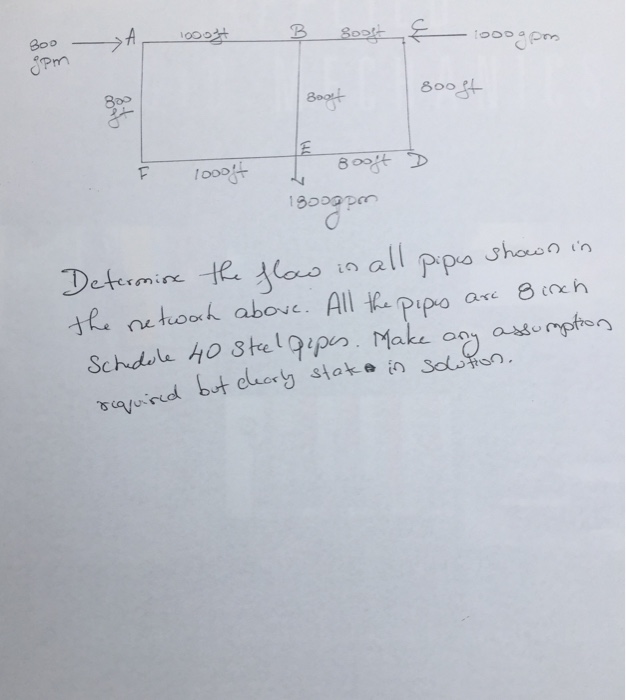 800 gpm → A 1000ft B 800ft C ← 1000gpm
800 ft 800ft 800ft
F 1000ft E 800ft D
1800gpm
Determine the flow in all pipes shown in
the network above. All the pipes are 8 inch
Schedule 40 Steel pipes. Make any assumption
required but clearly state in solution.